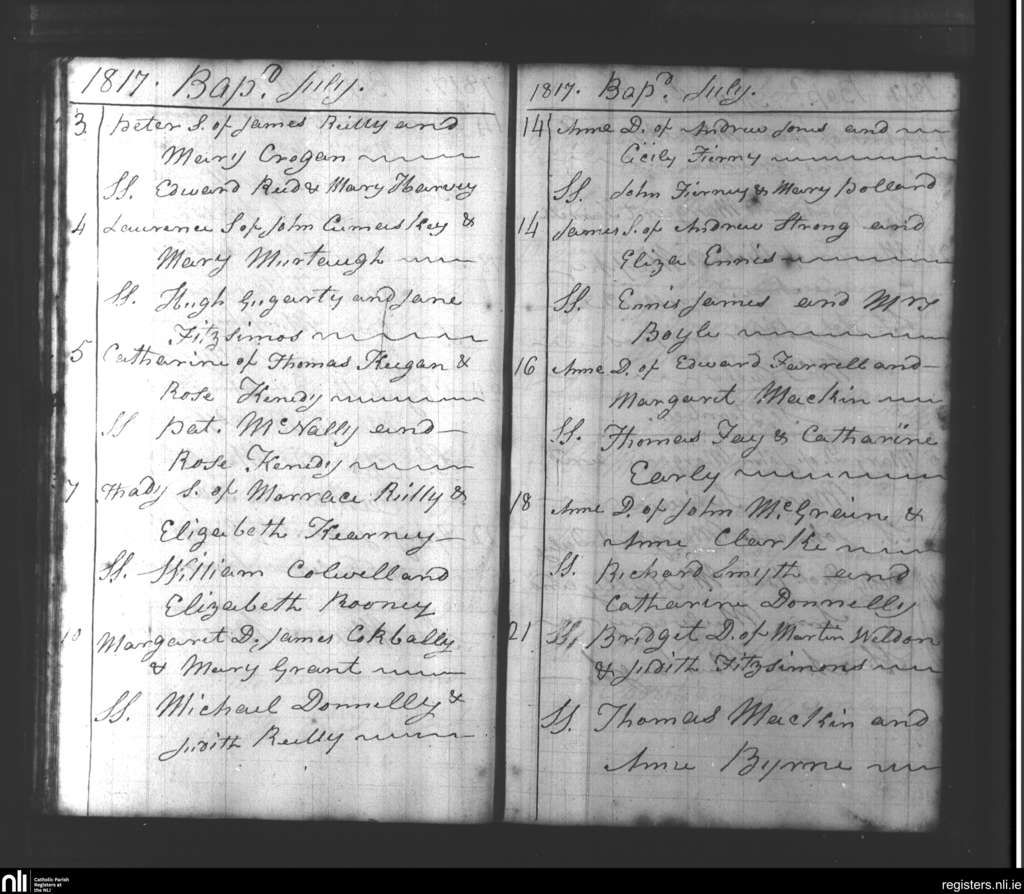 1817. Bapd. July.
3 Peter S. of James Reilly and
Mary Crogan
SS. Edward Reid & Mary Harvey
4 Laurence S of John Cumaskey &
Mary Murtaugh
SS. Hugh Gugarty and Jane
Fitzsimos
5 Catharine of Thomas Keegan &
Rose Kenedy
SS Pat. McNally and
Rose Kenedy
7 Thady S. of Morrace Reilly &
Elizabeth Kearney
SS. William Colwell and
Elizabeth Rooney
10 Margaret D, James Cokbally
& Mary Grant
SS. Michael Donnelly &
Judith Reilly
1817. Bapd. July.
14 Anne D. of Andrew Jones and
Cicily Tierny
SS. John Tierney & Mary Holland
14 James S. of Andrew Strong and
Eliza Ennis
SS. Ennis James and Mrs
Boyle
16 Anne D. of Edward Farrell and
Margaret Mackin
SS. Thomas Fay & Catharine
Early
18 Anne D. of John McGraine &
Anne Clarke
SS. Richard Smyth and
Catharine Donnelly
21 SS, Bridget D. of Martin Weldon
& Judith Fitzsimons
SS. Thomas Mackin and
Anne Byrne
nli Catholic Parish
Registers at
the NLI
registers.nli.ie